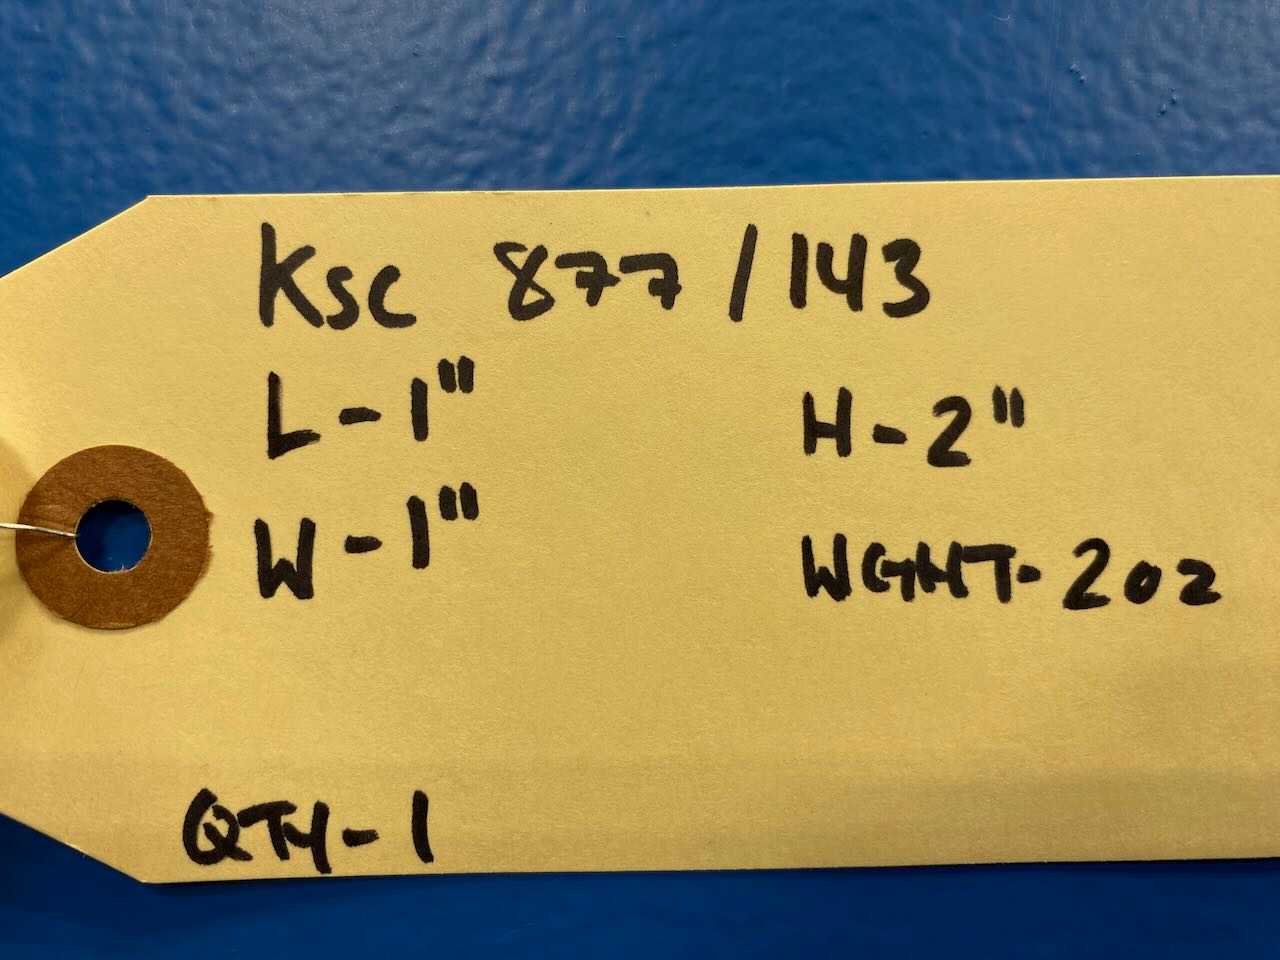 KSC 877/143
L-1" H-2"
W-1" WGHT-2oz
QTY-1